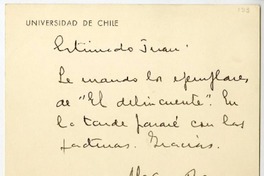 UNIVERSIDAD DE CHILE
Estimado Juan:
Le mando los ejemplares
de "El delincuente". En
la tarde pasaré con las
facturas. Gracias.